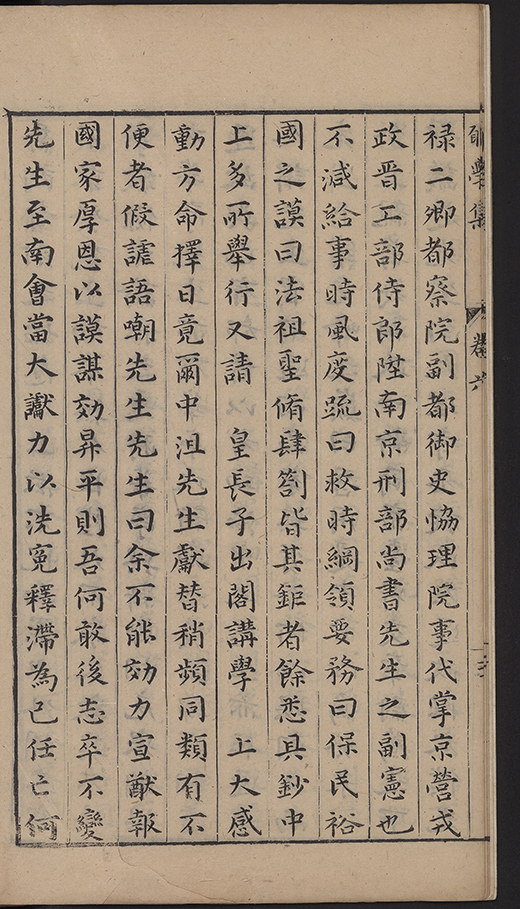 學集 卷六
祿二卿都察院副都御史協理院事代掌京營戎
政晋工部侍郎陞南京刑部尚書先生之副憲也
不減給事時風度疏曰救時綱領要務曰保民裕
國之謨曰法祖聖脩肆劄皆其鉅者餘悉具鈔中
上多所舉行又請 皇長子出閣講學 上大感
動方命擇日竟爾中沮先生獻替稍頻同類有不
便者假謔語嘲先生先生曰余不能効力宣猷報
國家厚恩以謨謀効昇平則吾何敢後志卒不變
先生至南會當大讞力以洗寃釋滯為己任亡何